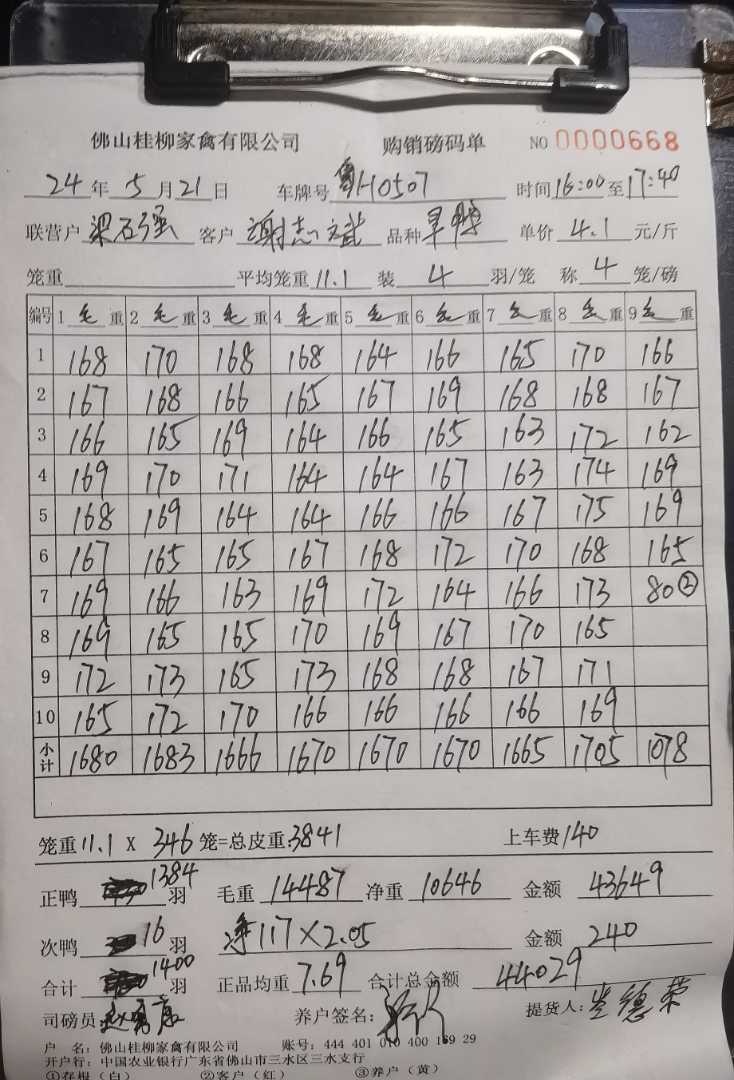 佛山桂柳家禽有限公司 购销磅码单 NO 0000668
24年5月21日 车牌号 粤H0507 时间16:00至17:40
联营户 梁石强 客户 谢志斌 品种 旱鸭 单价 4.1 元/斤
笼重 平均笼重 11.1 装 4 羽/笼 称 4 笼/磅
编号 1 毛 重 2 毛 重 3 毛 重 4 毛 重 5 毛 重 6 毛 重 7 毛 重 8 毛 重 9 毛 重
1 168 170 168 168 164 166 165 170 166
2 167 168 166 165 167 169 168 168 167
3 166 165 169 164 166 165 163 172 162
4 169 170 171 164 164 167 163 174 169
5 168 169 164 164 166 166 167 175 169
6 167 165 165 167 168 172 170 168 165
7 169 166 163 169 172 164 166 173 80②
8 169 165 165 170 169 167 170 165
9 172 173 165 173 168 168 167 171
10 165 172 170 166 166 166 166 169
小计 1680 1683 1666 1670 1670 1670 1665 1705 1078
笼重 11.1 X 346 笼=总皮重 3841 上车费 140
正鸭 1384 羽 毛重 14487 净重 10646 金额 43649
次鸭 16 羽 净117×2.05 金额 240
合计 1400 羽 正品均重 7.69 合计总金额 44029
司磅员: 养户签名: 提货人:
户 名: 佛山桂柳家禽有限公司 账号: 444 401 010 400 169 29
开户行: 中国农业银行广东省佛山市三水区三水支行
①存根(白) ②客户(红) ③养户(黄)